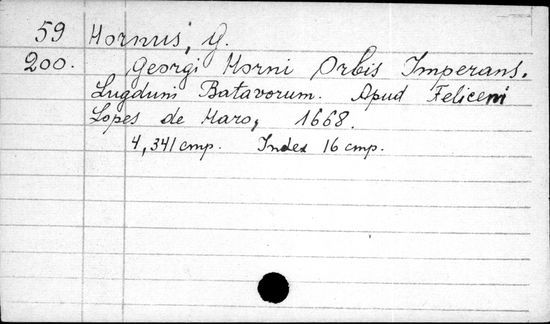 59 Hornus, G.
200. Georgi Horni Orbis Imperans.
Lugduni Batavorum. Apud Felicem
Lopes de Haro, 1668.
4, 341 cmp. Index 16 cmp.